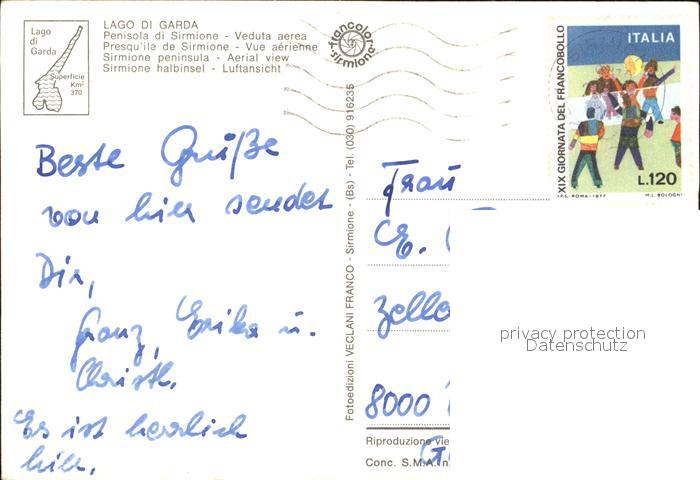 LAGO DI GARDA
Penisola di Sirmione - Veduta aerea
Presqu'ile de Sirmione - Vue aérienne
Sirmione peninsula - Aerial view
Sirmione halbinsel - Luftansicht
Lago
di
Garda
Superficie
Km²
370
francolor
sirmione
XIX GIORNATA DEL FRANCOBOLLO
ITALIA
L.120
I.P.S.-ROMA-1977
M.L. BOLOGNI
Beste Grüße
von hier sendet
Dir,
Franz, Erika u.
Christl.
Es ist herrlich
hier.
Fotoedizioni VECLANI FRANCO - Sirmione - (Bs) - Tel. (030) 916235
Frau
E.
8000
Riproduzione vie
Conc. S.M.A. n
privacy protection
Datenschutz